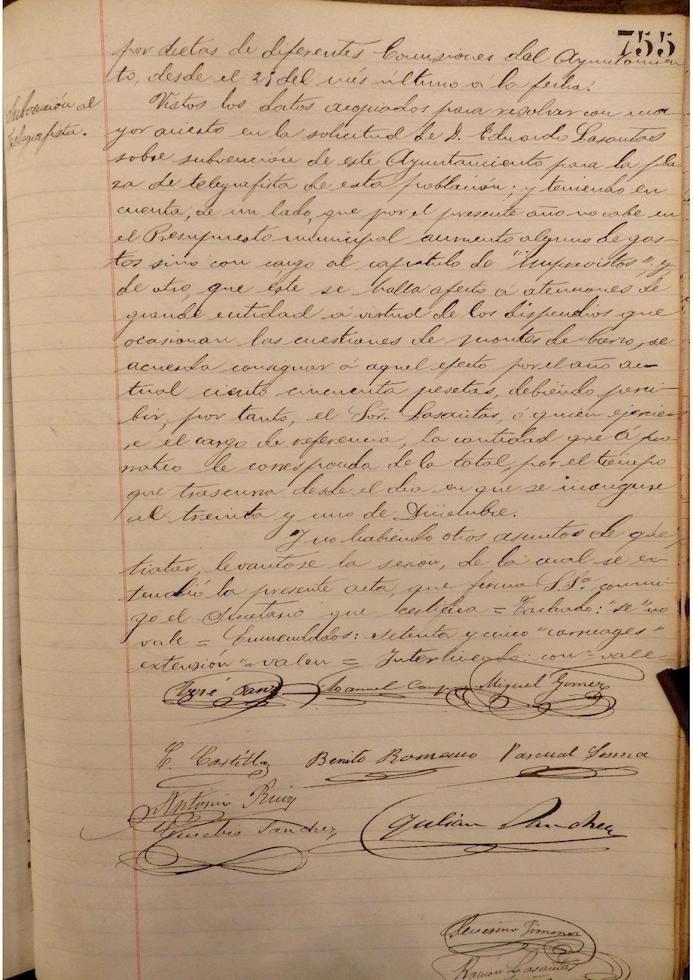 755
por dietas de diferentes Comisiones del Ayuntamien
to, desde el 21 del més último á la fecha.
Subvención al
telegrafista.
Vistos los datos acopiados para resolver con ma
yor acierto en la solicitud de D. Eduardo Lasantas
sobre subvención de este Ayuntamiento para la pla
za de telegrafista de esta población; y teniendo en
cuenta, de un lado, que por el presente año no cabe en
el Presupuesto municipal aumento alguno de gas-
tos sino con cargo al capitulo de "Imprevistos", y
de otro que este se halla afecto á atenciones de
grande entidad á virtud de los dispendios que
ocasionan las cuestiones de montes de hierro, se
acuerda consignar á aquel efecto por el año ac-
tual ciento cincuenta pesetas, debiendo perci
bir, por tanto, el Sor. Lasantas, ó quien ejercie-
se el cargo de referencia, la cantidad que á pro
rrateo le corresponda de la total, por el tiempo
que trascurra desde el dia en que se inaugure
al treinta y uno de Diciembre.
Y no habiendo otros asuntos de que
tratar, levantóse la sesion, de la cual se ex
tendió la presente acta, que firma S.Sª. conmi-
go el Secretario que certifica = Tachado: "se" no
vale = Enmendados: setenta y cinco "carruages"
extensión = valen = Interlineado: con = vale
José Sanz Manuel Miguel Gomez
C. Castilla Benito Romano Pascual
Antonio Ruiz
Eusebio Sanchez Julián Sanchez
Severino Jimenez
Ramón Lasantas